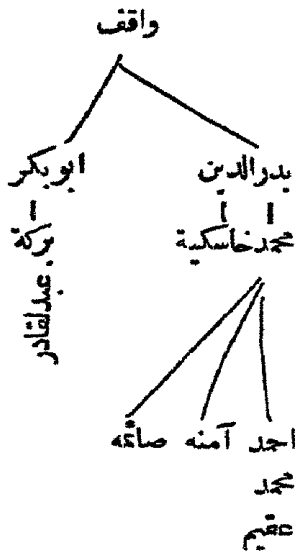 واقف
بدرالدين ابوبكر
محمد خاسكية بركة
عبدلقادر
احمد آمنه صائمه
محمد
عقيم